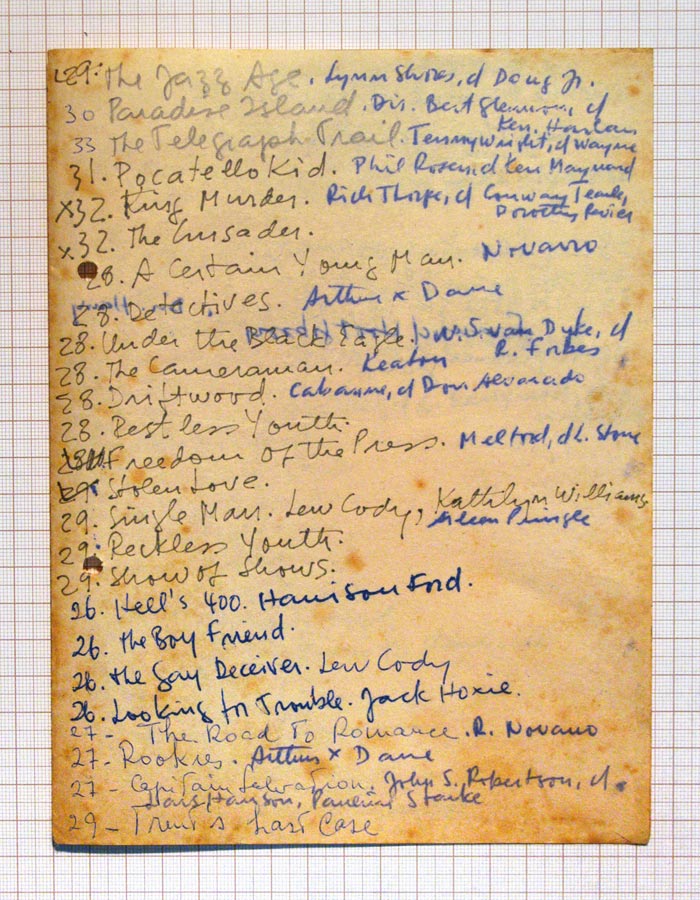 29. The Jazz Age. Lynn Shores, d Doug Jr.
30 Paradise Island. Dir. Bert Glennon, d
Ken. Harlan
33 The Telegraph Trail. Tenny Wright, d Wayne
31. Pocatello Kid. Phil Rosen, d Ken Maynard
x32. King Murder. Rich Thorpe, d Conway Tearle,
Dorothy Revier
x32. The Crusader.
28. A Certain Young Man. Novarro
28. Detectives. Arthur x Dane
28. Under the Black Eagle. W. S. van Dyke, d
R. Forbes
28. The Cameraman. Keaton
28. Driftwood. Cabanne, d Don Alvarado
28. Restless Youth.
Freedom of the Press. Melford, d L. Stone
29. Stolen Love.
29. Single Man. Lew Cody, Kathlyn Williams
Aileen Pringle
29. Reckless Youth.
29. Show of Shows.
26. Hell's 400. Harrison Ford.
26. The Boy Friend.
26. The Gay Deceiver. Lew Cody
26. Looking for Trouble. Jack Hoxie.
27- The Road To Romance. R. Novarro
27- Rookies. Arthur x Dane
27- Captain Salvation. John S. Robertson, d.
Lars Hanson, Pauline Starke
29- Trent's Last Case